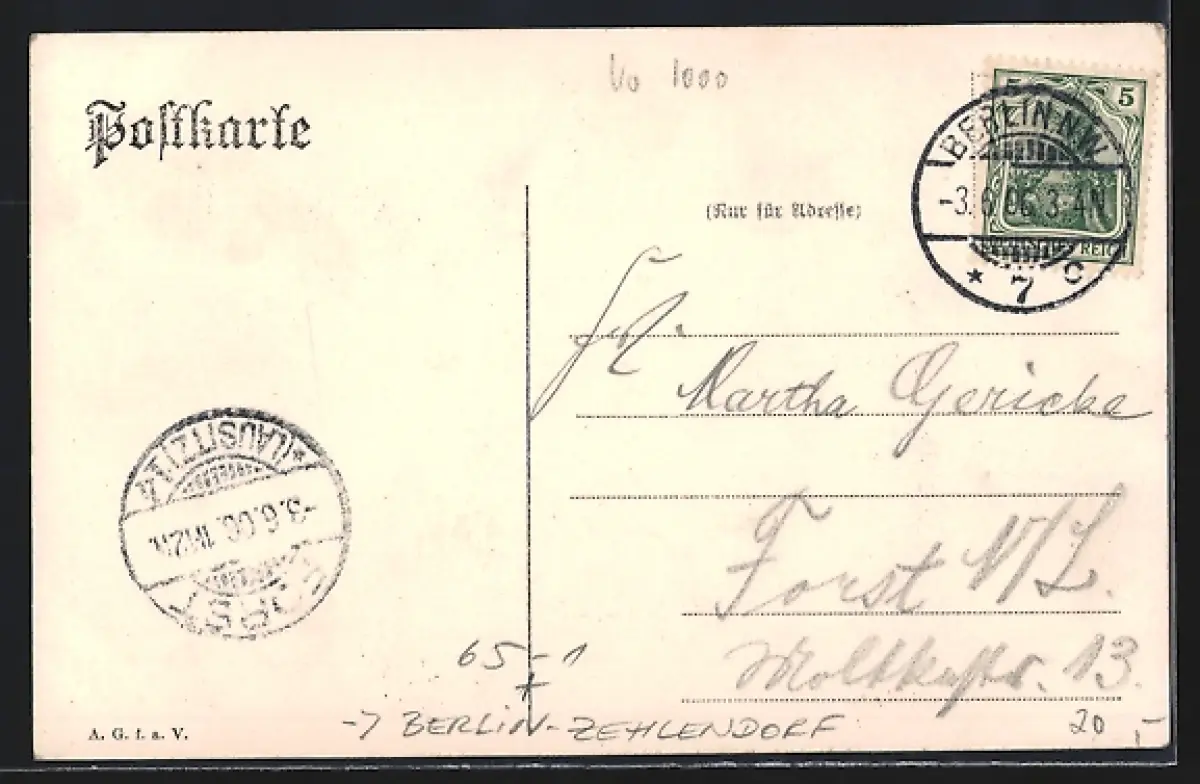 Vo 1000
Postkarte
(Nur für Adresse)
5 5
REICH
BERLIN N.W.
-3.6.06. 3-4N
* 7 c
Frl.
Martha Gericke
Forst N/L.
Moltkestr. 13.
*(LAUSITZ)
-3.6.06.
FORST
65-1
+
→ BERLIN-ZEHLENDORF
20,-
A. G. f. a. V.